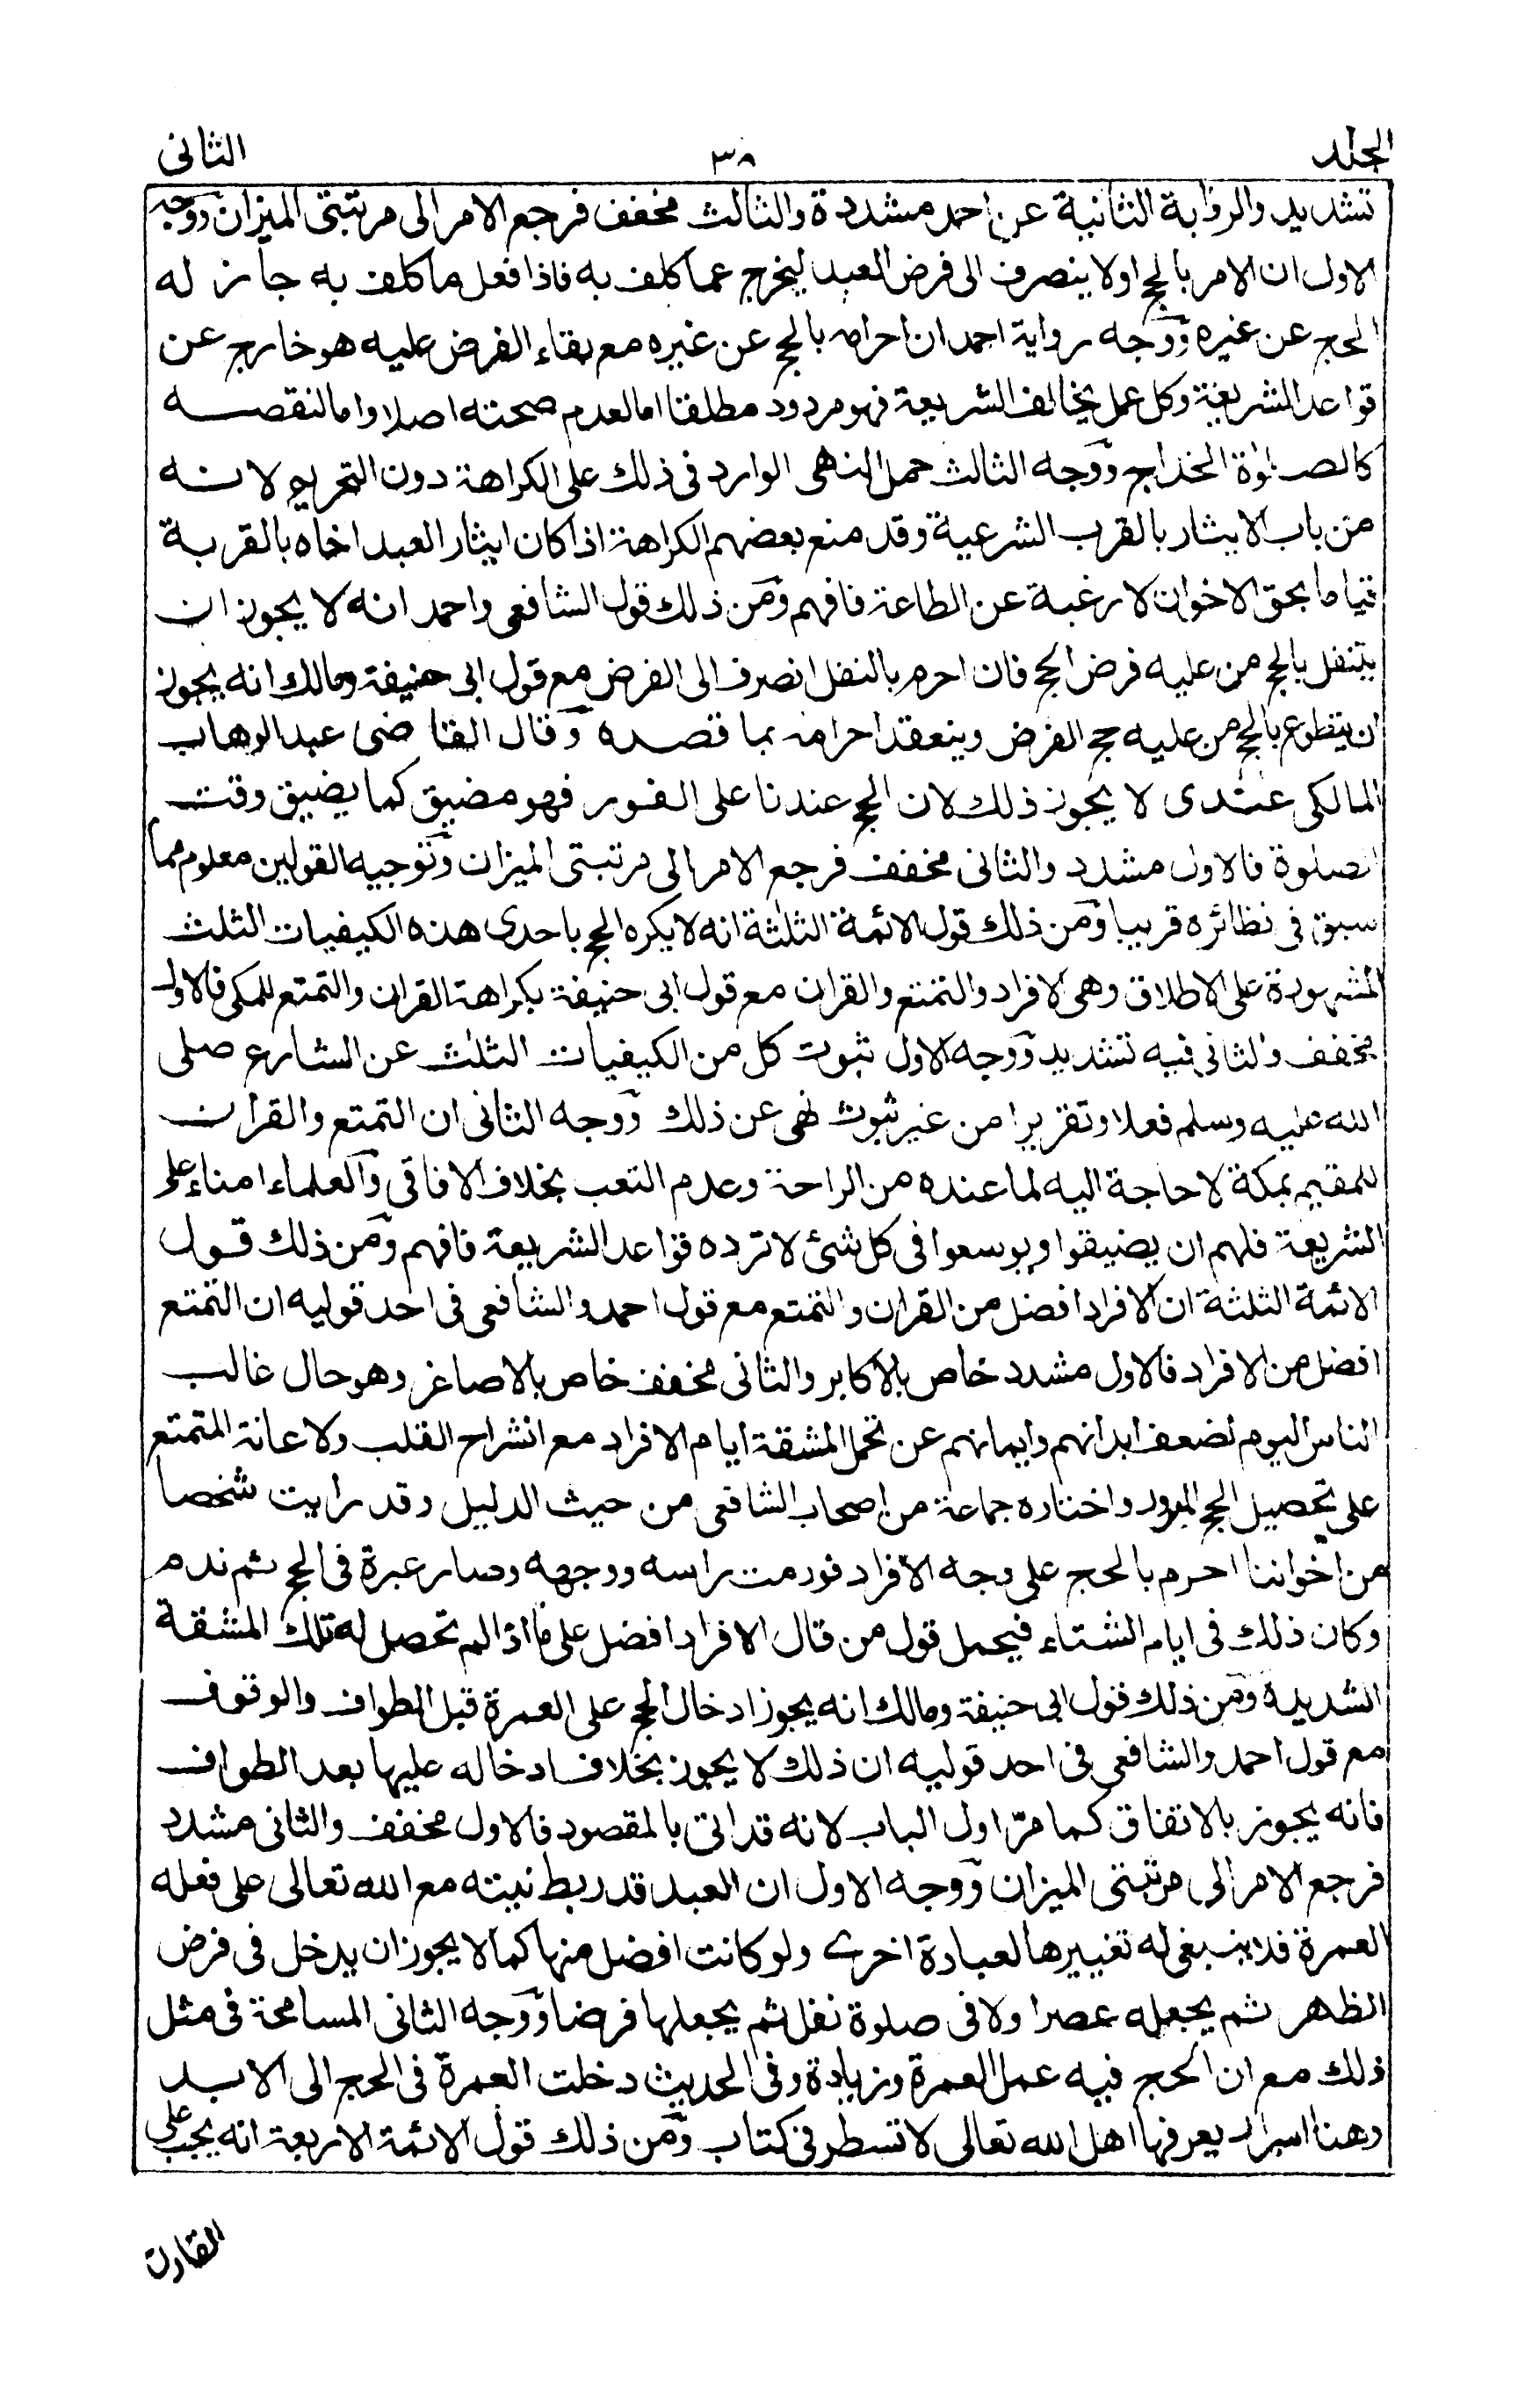 الجلد ٣٨ الثانى
تشديد والرواية الثانية عن احمد مشددة والثالث مخفف فرجع الامر الى مرتبتى الميزان ووجه
الاول ان الامر بالحج اولا ينصرف الى فرض العبد ليخرج عما كلف به فاذا فعل ما كلف به جاز له
الحج عن غيره ووجه رواية احمد ان احرامه بالحج عن غيره مع بقاء الفرض عليه هو خارج عن
قواعد الشريعة وكل عمل يخالف الشريعة فهو مردود مطلقا اما لعدم صحته اصلا واما لنقصه
كالصلوة الخداج ووجه الثالث حمل النهى الوارد فى ذلك على الكراهة دون التحريم لانه
من باب الايثار بالقرب الشرعية وقد منع بعضهم الكراهة اذا كان ايثار العبد اخاه بالقربة
قياما بحق الاخوان لا رغبة عن الطاعة فافهم ومن ذلك قول الشافعى واحمد انه لا يجوز ان
يتنفل بالحج من عليه فرض الحج فان احرم بالنفل انصرف الى الفرض مع قول ابى حنيفة ومالك انه يجوز
ان يتطوع بالحج من عليه حج الفرض وينعقد احرامه بما قصده وقال القاضى عبد الوهاب
المالكى عندى لا يجوز ذلك لان الحج عندنا على الفور فهو مضيق كما يضيق وقت
الصلوة فالاول مشدد والثانى مخفف فرجع الامر الى مرتبتى الميزان وتوجيه القولين معلوم مما
سبق فى نظائره قريبا ومن ذلك قول الائمة الثلثة انه لا يكره الحج باحدى هذه الكيفيات الثلث
المشهورة على الاطلاق وهى الافراد والتمتع والقران مع قول ابى حنيفة بكراهة القران والتمتع للمكى فالاول
مخفف والثانى فيه تشديد ووجه الاول ثبوت كل من الكيفيات الثلث عن الشارع صلى
الله عليه وسلم فعلا وتقريرا من غير ثبوت نهى عن ذلك ووجه الثانى ان التمتع والقران
للمقيم بمكة لا حاجة اليه لما عنده من الراحة وعدم التعب بخلاف الافاقى والعلماء امناء على
الشريعة فلهم ان يضيقوا ويوسعوا فى كل شئ لا ترده قواعد الشريعة فافهم ومن ذلك قول
الائمة الثلثة ان الافراد افضل من القران والتمتع مع قول احمد والشافعى فى احد قوليه ان التمتع
افضل من الافراد فالاول مشدد خاص بالاكابر والثانى مخفف خاص بالاصاغر وهو حال غالب
الناس اليوم لضعف ابدانهم وايمانهم عن تحمل المشقة ايام الافراد مع انشراح القلب ولاعانة المتمتع
على تحصيل الحج المبرور واختاره جماعة من اصحاب الشافعى من حيث الدليل وقد رايت شخصا
من اخواننا احرم بالحج على وجه الافراد فورمت راسه ووجهه وصار عبرة فى الحج ثم ندم
وكان ذلك فى ايام الشتاء فيحمل قول من قال الافراد افضل على ما اذا لم تحصل له تلك المشقة
الشديدة ومن ذلك قول ابى حنيفة ومالك انه يجوز ادخال الحج على العمرة قبل الطواف والوقوف
مع قول احمد والشافعى فى احد قوليه ان ذلك لا يجوز بخلاف ادخاله عليها بعد الطواف
فانه يجوز بالاتفاق كما مرّ اول الباب لانه قد اتى بالمقصود فالاول مخفف والثانى مشدد
فرجع الامر الى مرتبتى الميزان ووجه الاول ان العبد قد ربط نيته مع الله تعالى على فعله
العمرة فلا ينبغى له تغييرها لعبادة اخرى ولو كانت افضل منها كما لا يجوز ان يدخل فى فرض
الظهر ثم يجعله عصرا ولا فى صلوة نفل ثم يجعلها فرضا ووجه الثانى المسامحة فى مثل
ذلك مع ان الحج فيه عمل العمرة وزيادة وفى الحديث دخلت العمرة فى الحج الى الابد
وهنا اسرار يعرفها اهل الله تعالى لا تسطر فى كتاب ومن ذلك قول الائمة الاربعة انه يجب على
القارن